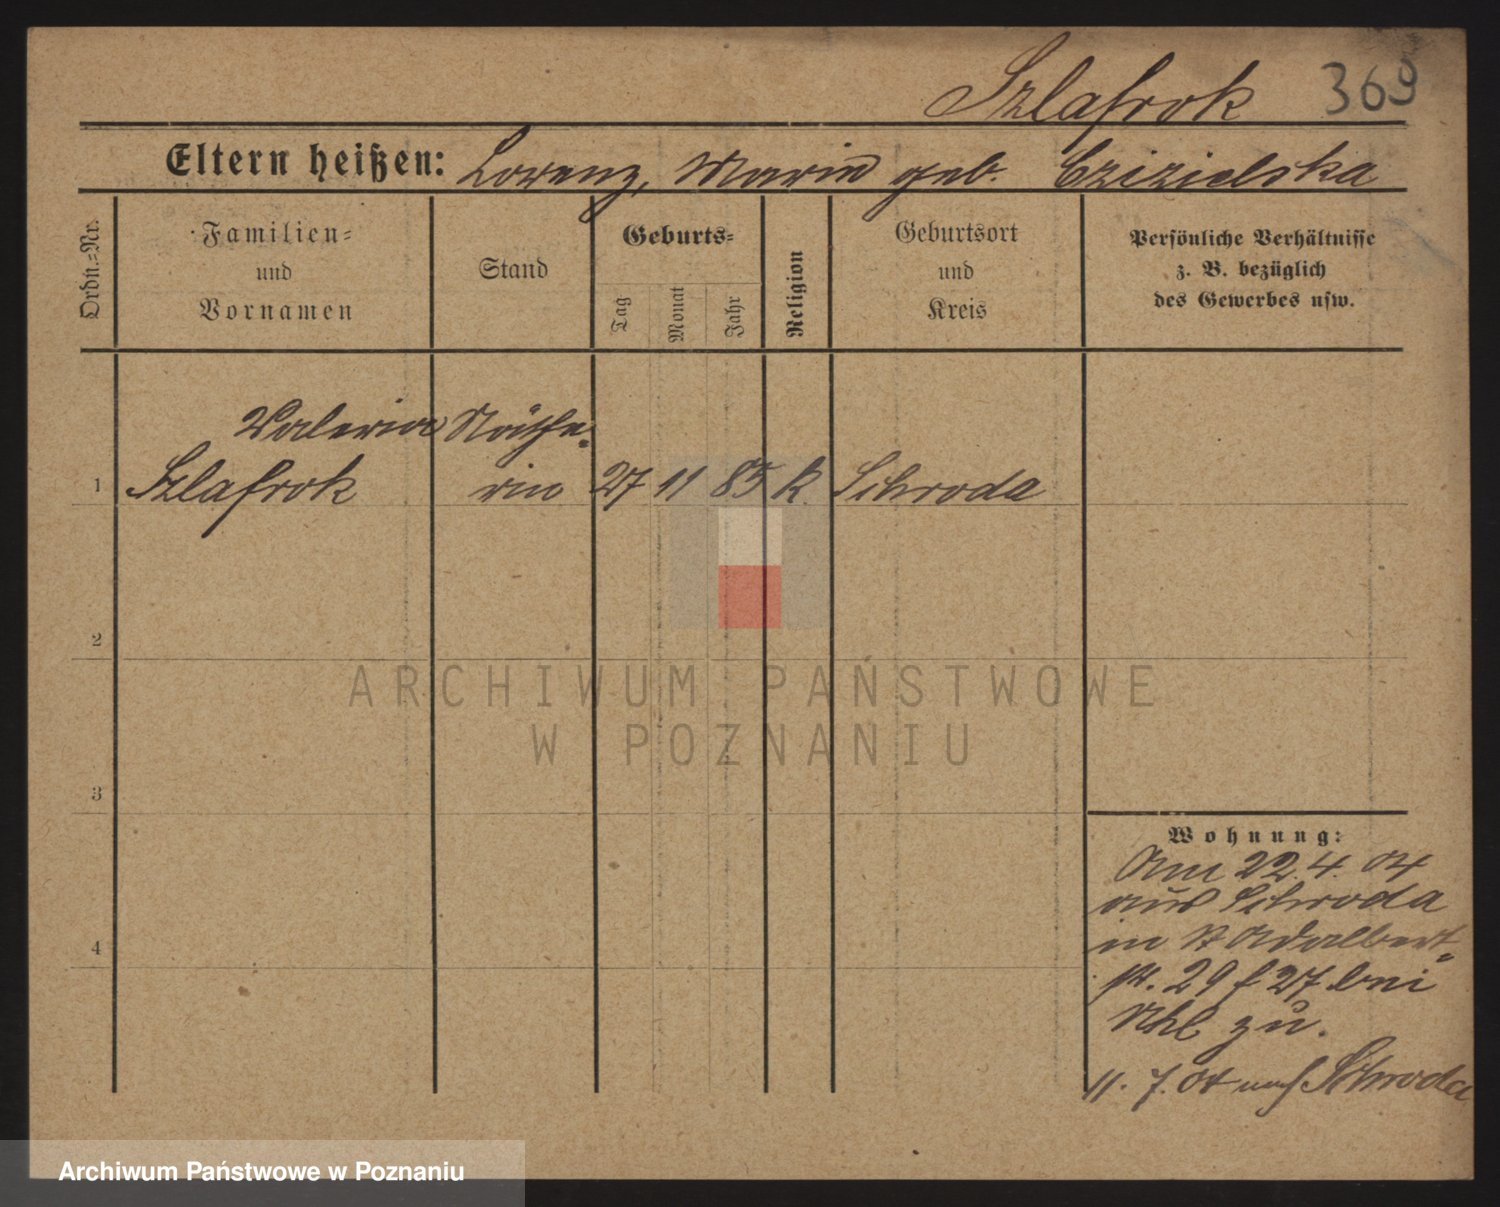 Szlafrok 369
Eltern heißen: Lorenz, Maria geb. Czizielska
Ordn.-Nr.
Familien-
und
Vornamen
Stand
Geburts-
Tag
Monat
Jahr
Religion
Geburtsort
und
Kreis
Persönliche Verhältnisse
z. B. bezüglich
des Gewerbes usw.
Valeria Näthe-
1 Szlafrok rin 27 11 85 k. Schroda
2
3
4
Wohnung:
Am 22.4.04
aus Schroda
in St Adalbert-
str. 29 f 27 bei
zu.
11.7.04 nach Schroda
ARCHIWUM PAŃSTWOWE
W POZNANIU
Archiwum Państwowe w Poznaniu